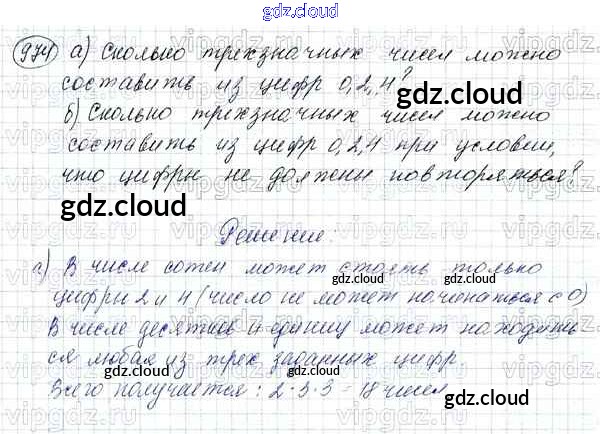 gdz.cloud
974 а) Сколько трехзначных чисел можно
составить из цифр 0,2,4?
gdz.cloud
б) Сколько трехзначных чисел можно
составить из цифр 0,2,4 при условии,
что цифры не должны повторяться?
gdz.cloud
gdz.cloud
Решение.
а) В числе сотен может стоять только
gdz.cloud
gdz.cloud
цифры 2 и 4 (число не может начинаться с 0)
В числе десятков и единиц может находить
ся любая из трех заданных цифр
gdz.cloud
gdz.cloud
Всего получается: 2·3·3 = 18 чисел